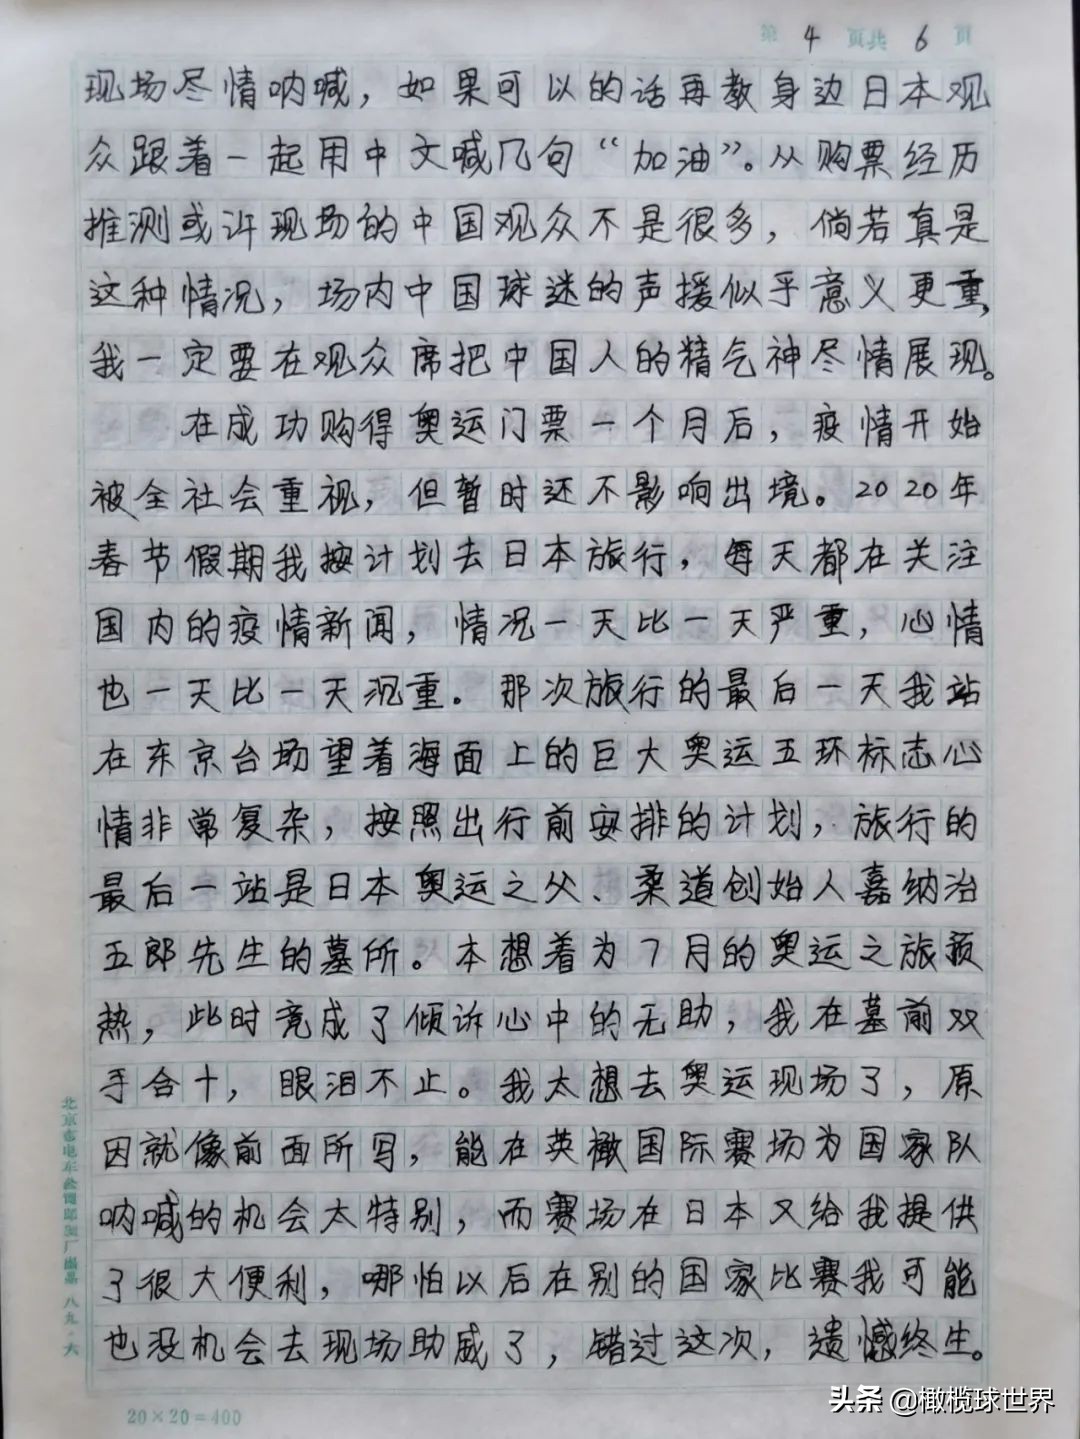 第 4 页共 6 页
现场尽情呐喊，如果可以的话再教身边日本观
众跟着一起用中文喊几句“加油”。从购票经历
推测或许现场的中国观众不是很多，倘若真是
这种情况，场内中国球迷的声援似乎意义更重，
我一定要在观众席把中国人的精气神尽情展现。
在成功购得奥运门票一个月后，疫情开始
被全社会重视，但暂时还不影响出境。2020年
春节假期我按计划去日本旅行，每天都在关注
国内的疫情新闻，情况一天比一天严重，心情
也一天比一天沉重。那次旅行的最后一天我站
在东京台场望着海面上的巨大奥运五环标志心
情非常复杂，按照出行前安排的计划，旅行的
最后一站是日本奥运之父、柔道创始人嘉纳治
五郎先生的墓所。本想着为7月的奥运之旅预
热，此时竟成了倾诉心中的无助，我在墓前双
手合十，眼泪不止。我太想去奥运现场了，原
因就像前面所写，能在英橄国际赛场为国家队
呐喊的机会太特别，而赛场在日本又给我提供
了很大便利，哪怕以后在别的国家比赛我可能
也没机会去现场助威了，错过这次，遗憾终生。
20×20=400
头条 @橄榄球世界